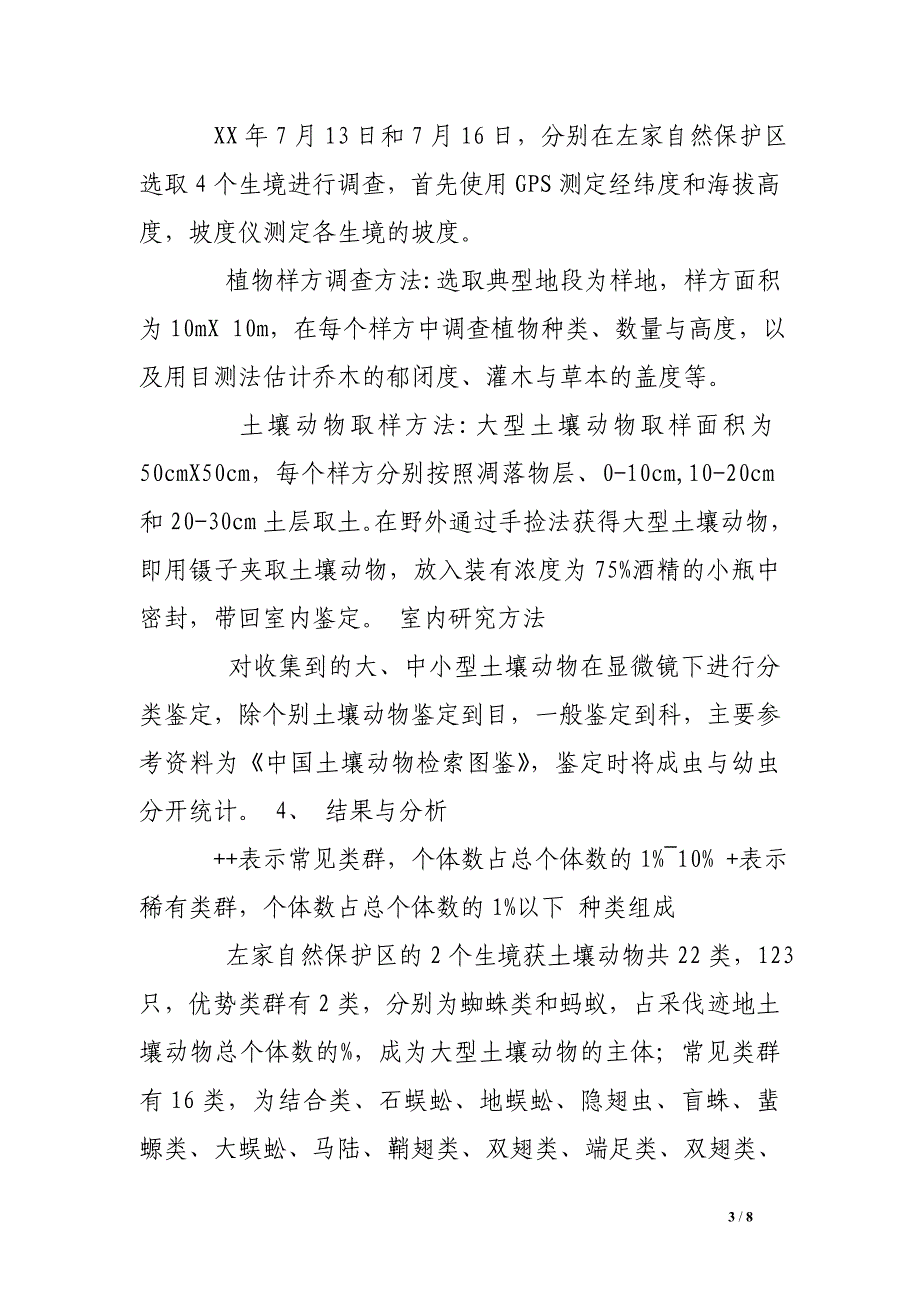 XX年7月13日和7月16日，分别在左家自然保护区
选取4个生境进行调查，首先使用GPS测定经纬度和海拔高
度，坡度仪测定各生境的坡度。
植物样方调查方法:选取典型地段为样地，样方面积
为10mX 10m，在每个样方中调查植物种类、数量与高度，以
及用目测法估计乔木的郁闭度、灌木与草本的盖度等。
土壤动物取样方法:大型土壤动物取样面积为
50cmX50cm，每个样方分别按照凋落物层、0-10cm,10-20cm
和20-30cm土层取土。在野外通过手捡法获得大型土壤动物，
即用镊子夹取土壤动物，放入装有浓度为75%酒精的小瓶中
密封，带回室内鉴定。 室内研究方法
对收集到的大、中小型土壤动物在显微镜下进行分
类鉴定，除个别土壤动物鉴定到目，一般鉴定到科，主要参
考资料为《中国土壤动物检索图鉴》，鉴定时将成虫与幼虫
分开统计。 4、 结果与分析
++表示常见类群，个体数占总个体数的1%¯10% +表示
稀有类群，个体数占总个体数的1%以下 种类组成
左家自然保护区的2个生境获土壤动物共22类，123
只，优势类群有2类，分别为蜘蛛类和蚂蚁，占采伐迹地土
壤动物总个体数的%，成为大型土壤动物的主体；常见类群
有16类，为结合类、石蜈蚣、地蜈蚣、隐翅虫、盲蛛、蜚
蠊类、大蜈蚣、马陆、鞘翅类、双翅类、端足类、双翅类、
3 / 8